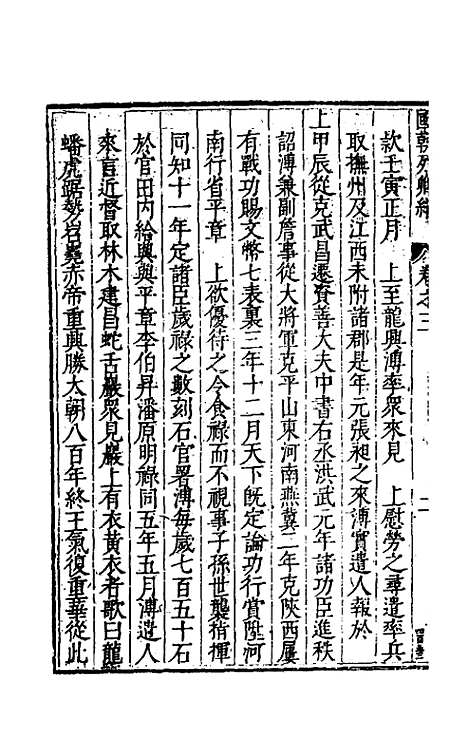 國朝列卿紀 卷之三
款壬寅正月 上至龍興溥率衆來見 上慰勞之尋遣率兵
取撫州及江西未附諸郡是年元張昶之來溥實遣人報於
上甲辰從克武昌遷資善大夫中書右丞洪武元年諸功臣進秩
詔溥兼副詹事從大將軍克平山東河南燕冀二年克陝西屢
有戰功賜文幣七表裏三年十二月天下既定論功行賞陞河
南行省平章 上欲優待之令食祿而不視事子孫世襲指揮
同知十一年定諸臣歲祿之數刻石官署溥每歲七百五十石
於官田內給與與平章李伯昇潘原明祿同五年五月溥遣人
來言近督取林木建昌蛇舌巖衆見巖上有衣黃衣者歌曰龍
蟠虎踞勢岧嶤赤帝重興勝大朝八百年終王氣復重華從此